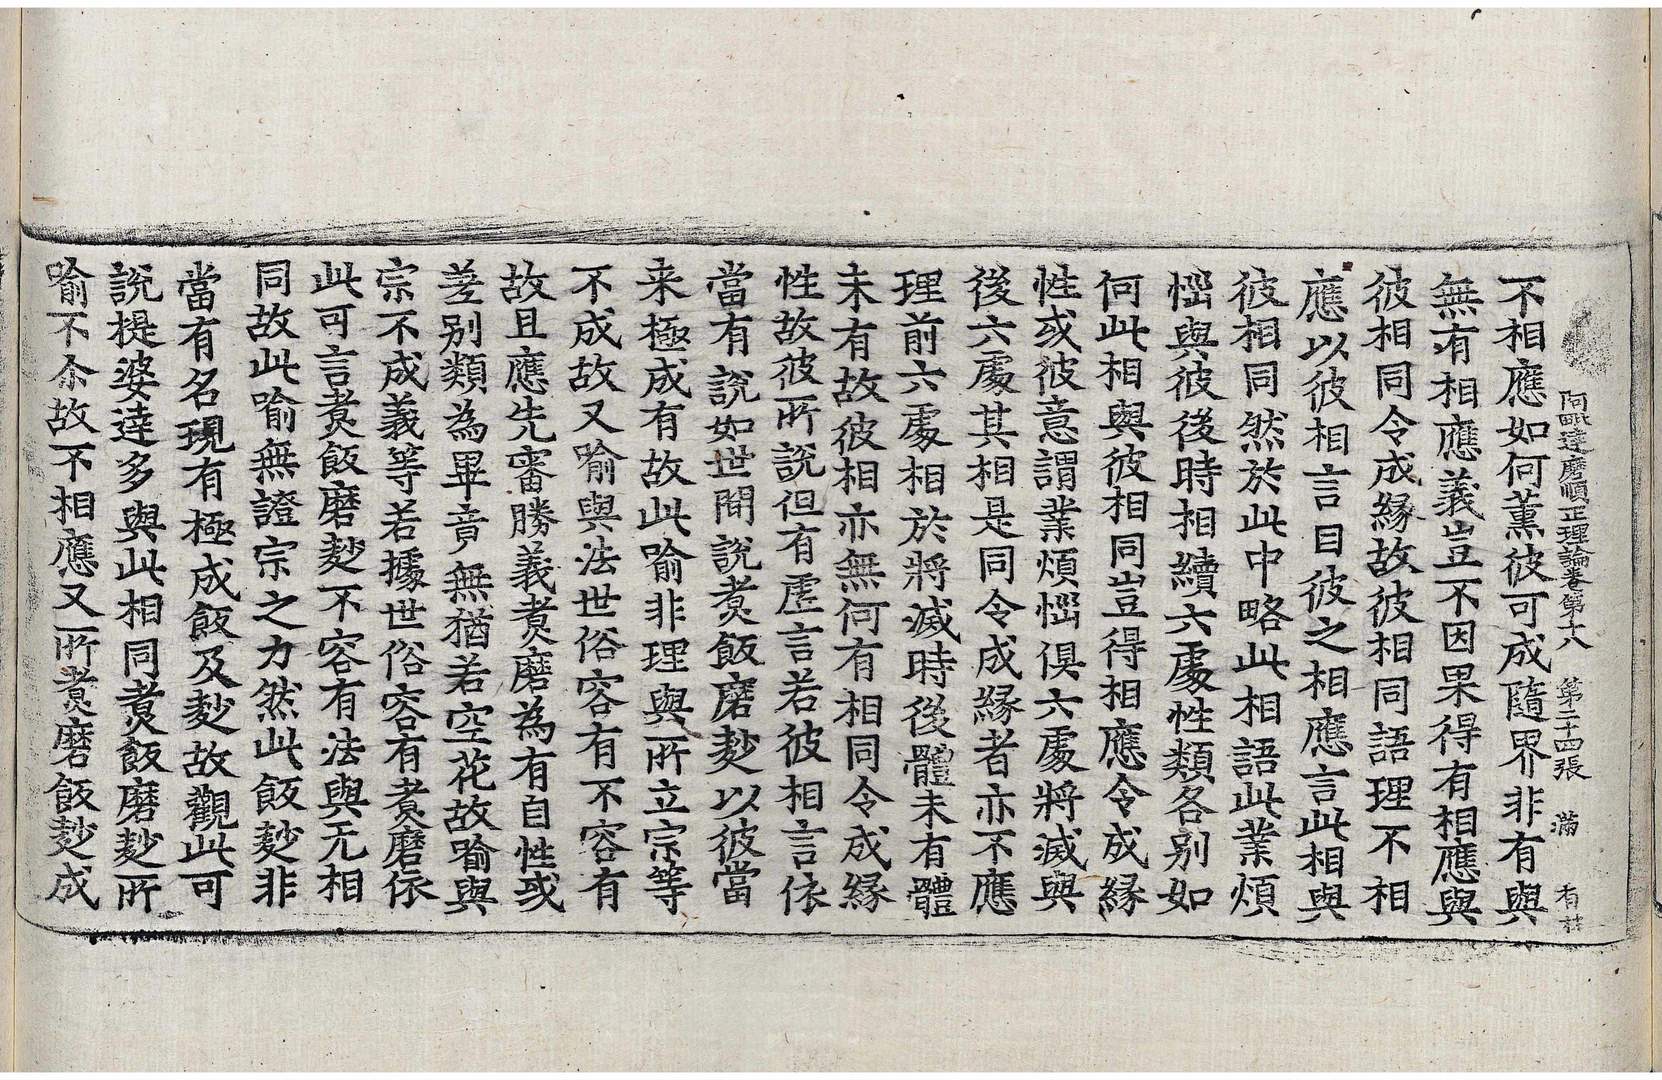 阿毗達磨順正理論卷第十八 第二十四張 滿 有
不相應如何薰彼可成隨界非有與
無有相應義豈不因果得有相應與
彼相同令成緣故彼相同語理不相
應以彼相言目彼之相應言此相與
彼相同然於此中略此相語此業煩
惱與彼後時相續六處性類各別如
何此相與彼相同豈得相應令成緣
性或彼意謂業煩惱俱六處將滅與
後六處其相是同令成緣者亦不應
理前六處相於將滅時後體未有體
未有故彼相亦無何有相同令成緣
性故彼所說但有虛言若彼相言依
當有說如世間說煑飯磨麨以彼當
来極成有故此喻非理與所立宗等
不成故又喻與法世俗容有不容有
故且應先審勝義煑磨為有自性或
差別類為畢竟無猶若空花故喻與
宗不成義等若據世俗容有煑磨依
此可言煑飯磨麨不容有法與无相
同故此喻無證宗之力然此飯麨非
當有名現有極成飯及麨故觀此可
說提婆達多與此相同煑飯磨麨所
喻不尒故不相應又所煑磨飯麨成